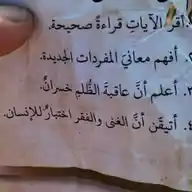 .أقرأ الآياتِ قراءةً صحيحة.
٢. أفهم معانيَ المفردات الجديدة.
٣. أعلم أنَّ عاقبةَ الظُّلمِ خسرانٌ.
٤. أتيقّن أنَّ الغنى والفقر اختبارٌ للإنسان.